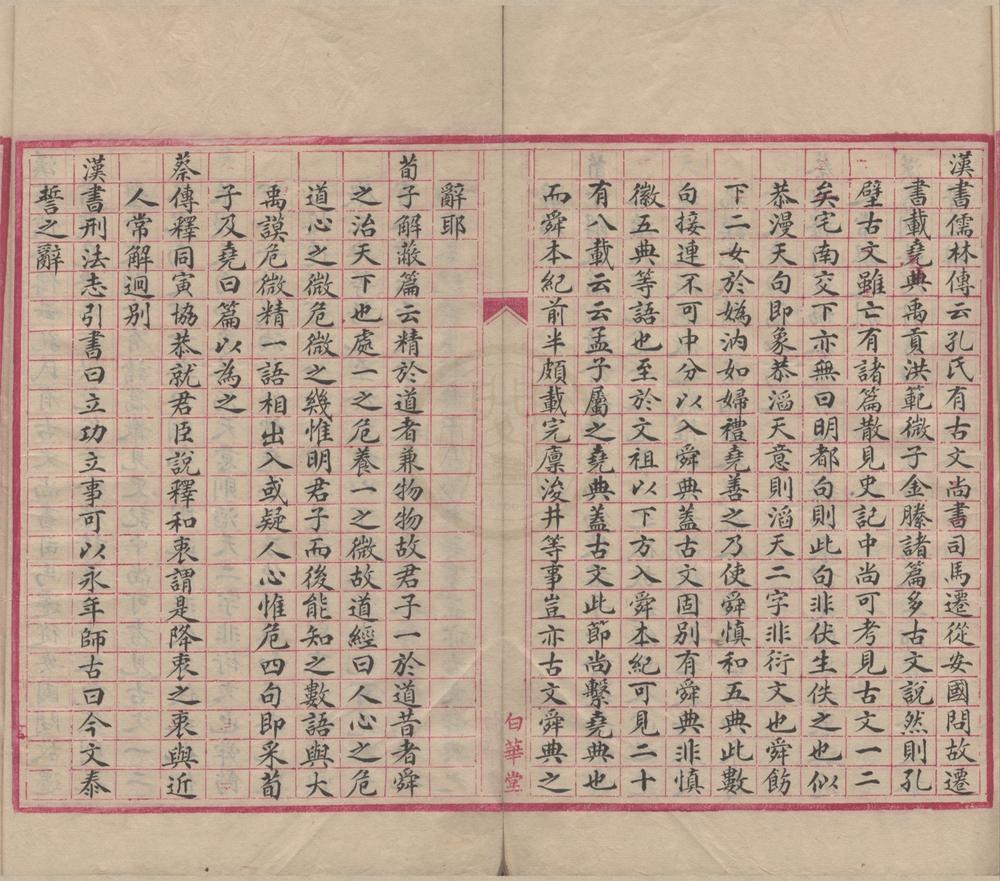 漢書儒林傳云孔氏有古文尚書司馬遷從安國問故遷
書載堯典禹貢洪範微子金縢諸篇多古文說然則孔
壁古文雖亡有諸篇散見史記中尚可考見古文一二
矣宅南交下亦無曰明都句則此句非伏生佚之也似
恭漫天句即象恭滔天意則滔天二字非衍文也舜飭
下二女於媯汭如婦禮堯善之乃使舜慎和五典此數
句接連不可中分以入舜典蓋古文固別有舜典非慎
徽五典等語也至於文祖以下方入舜本紀可見二十
有八載云云孟子屬之堯典蓋古文此節尚繫堯典也
而舜本紀前半頗載完廩浚井等事豈亦古文舜典之
白華堂
辭耶
荀子解蔽篇云精於道者兼物物故君子一於道昔者舜
之治天下也處一之危養一之微故道經曰人心之危
道心之微危微之幾惟明君子而後能知之數語與大
禹謨危微精一語相出入或疑人心惟危四句即采荀
子及堯曰篇以為之
蔡傳釋同寅協恭就君臣說釋和衷謂是降衷之衷與近
人常解迥別
漢書刑法志引書曰立功立事可以永年師古曰今文泰
誓之辭